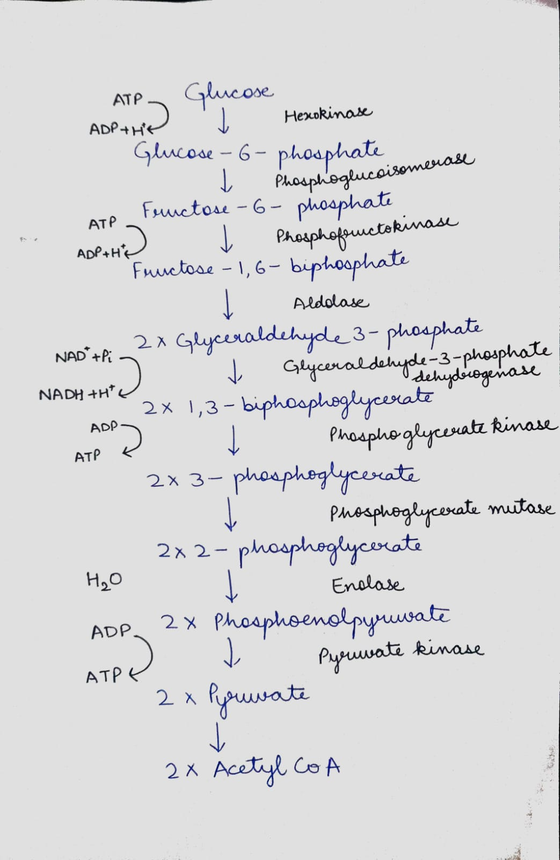 ATP Glucose
Hexokinase
ADP + H⁺
Glucose - 6 - phosphate
Phosphoglucoisomerase
Fructose - 6 - phosphate
ATP
Phosphofructokinase
ADP+H⁺
Fructose - 1,6 - biphosphate
Aldolase
2 x Glyceraldehyde 3 - phosphate
NAD⁺ + Pi
Glyceraldehyde-3-phosphate
dehydrogenase
NADH + H⁺
2 x 1,3 - biphosphoglycerate
ADP
Phosphoglycerate kinase
ATP
2 x 3 - phosphoglycerate
Phosphoglycerate mutase
2 x 2 - phosphoglycerate
H₂O
Enolase
2 x Phosphoenolpyruvate
ADP
Pyruvate kinase
ATP
2 x Pyruvate
2 x Acetyl CoA